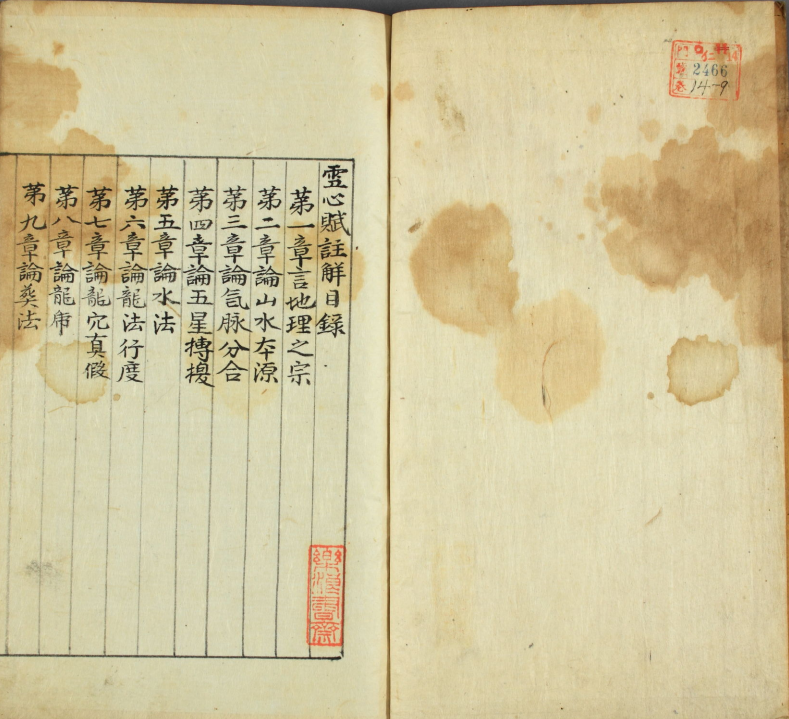 雪心賦註解目錄
第一章言地理之宗
第二章論山水本源
第三章論氣脉分合
第四章論五星摶換
第五章論水法
第六章論龍法行度
第七章論龍穴真假
第八章論龍虎
第九章論葬法
2466
14-9